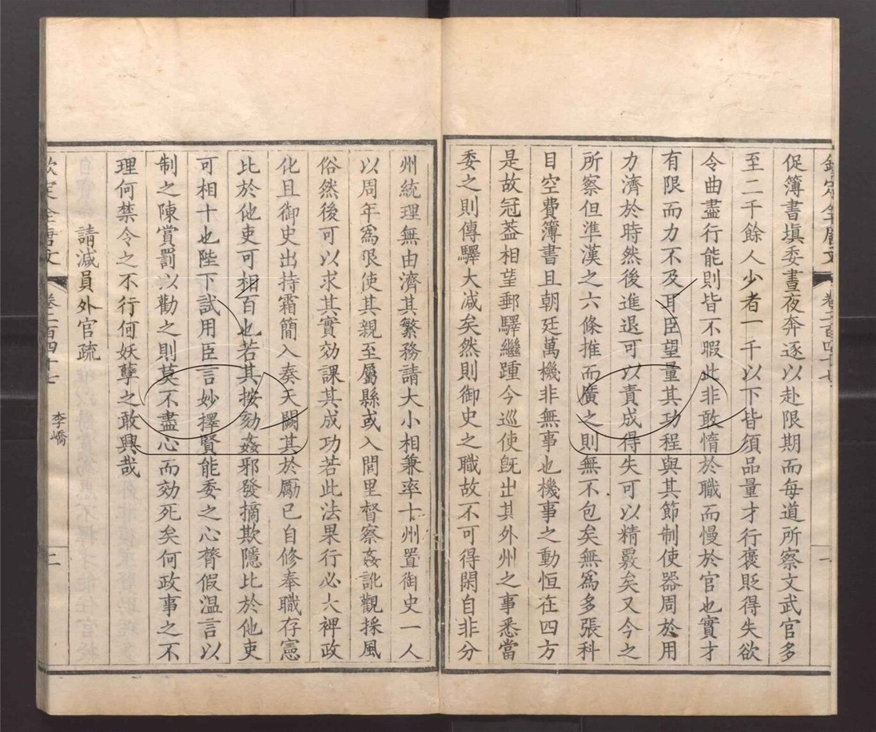 欽定全唐文 卷二百四十七
促簿書填委晝夜奔逐以赴限期而每道所察文武官多
至二千餘人少者一千以下皆須品量才行褒貶得失欲
令曲盡行能則皆不暇此非敢惰於職而慢於官也實才
有限而力不及耳臣望量其功程與其節制使器周於用
力濟於時然後進退可以責成得失可以精覈矣又今之
所察但準漢之六條推而廣之則無不包矣無為多張科
目空費簿書且朝廷萬機非無事也機事之動恒在四方
是故冠蓋相望郵驛繼踵今巡使旣出其外州之事悉當
委之則傳驛大減矣然則御史之職故不可得閑自非分
州統理無由濟其繁務請大小相兼率十州置御史一人
以周年為限使其親至屬縣或入閭里督察姦訛觀採風
俗然後可以求其實効課其成功若此法果行必大裨政
化且御史出持霜簡入奏天闕其於勵已自修奉職存憲
比於他吏可相百也若其按劾姦邪發摘欺隱比於他吏
可相十也陛下試用臣言妙擇賢能委之心膂假溫言以
制之陳賞罰以勸之則莫不盡心而効死矣何政事之不
理何禁令之不行何妖孽之敢興哉
請減員外官疏
欽定全唐文 卷二百四十七 李嶠 二